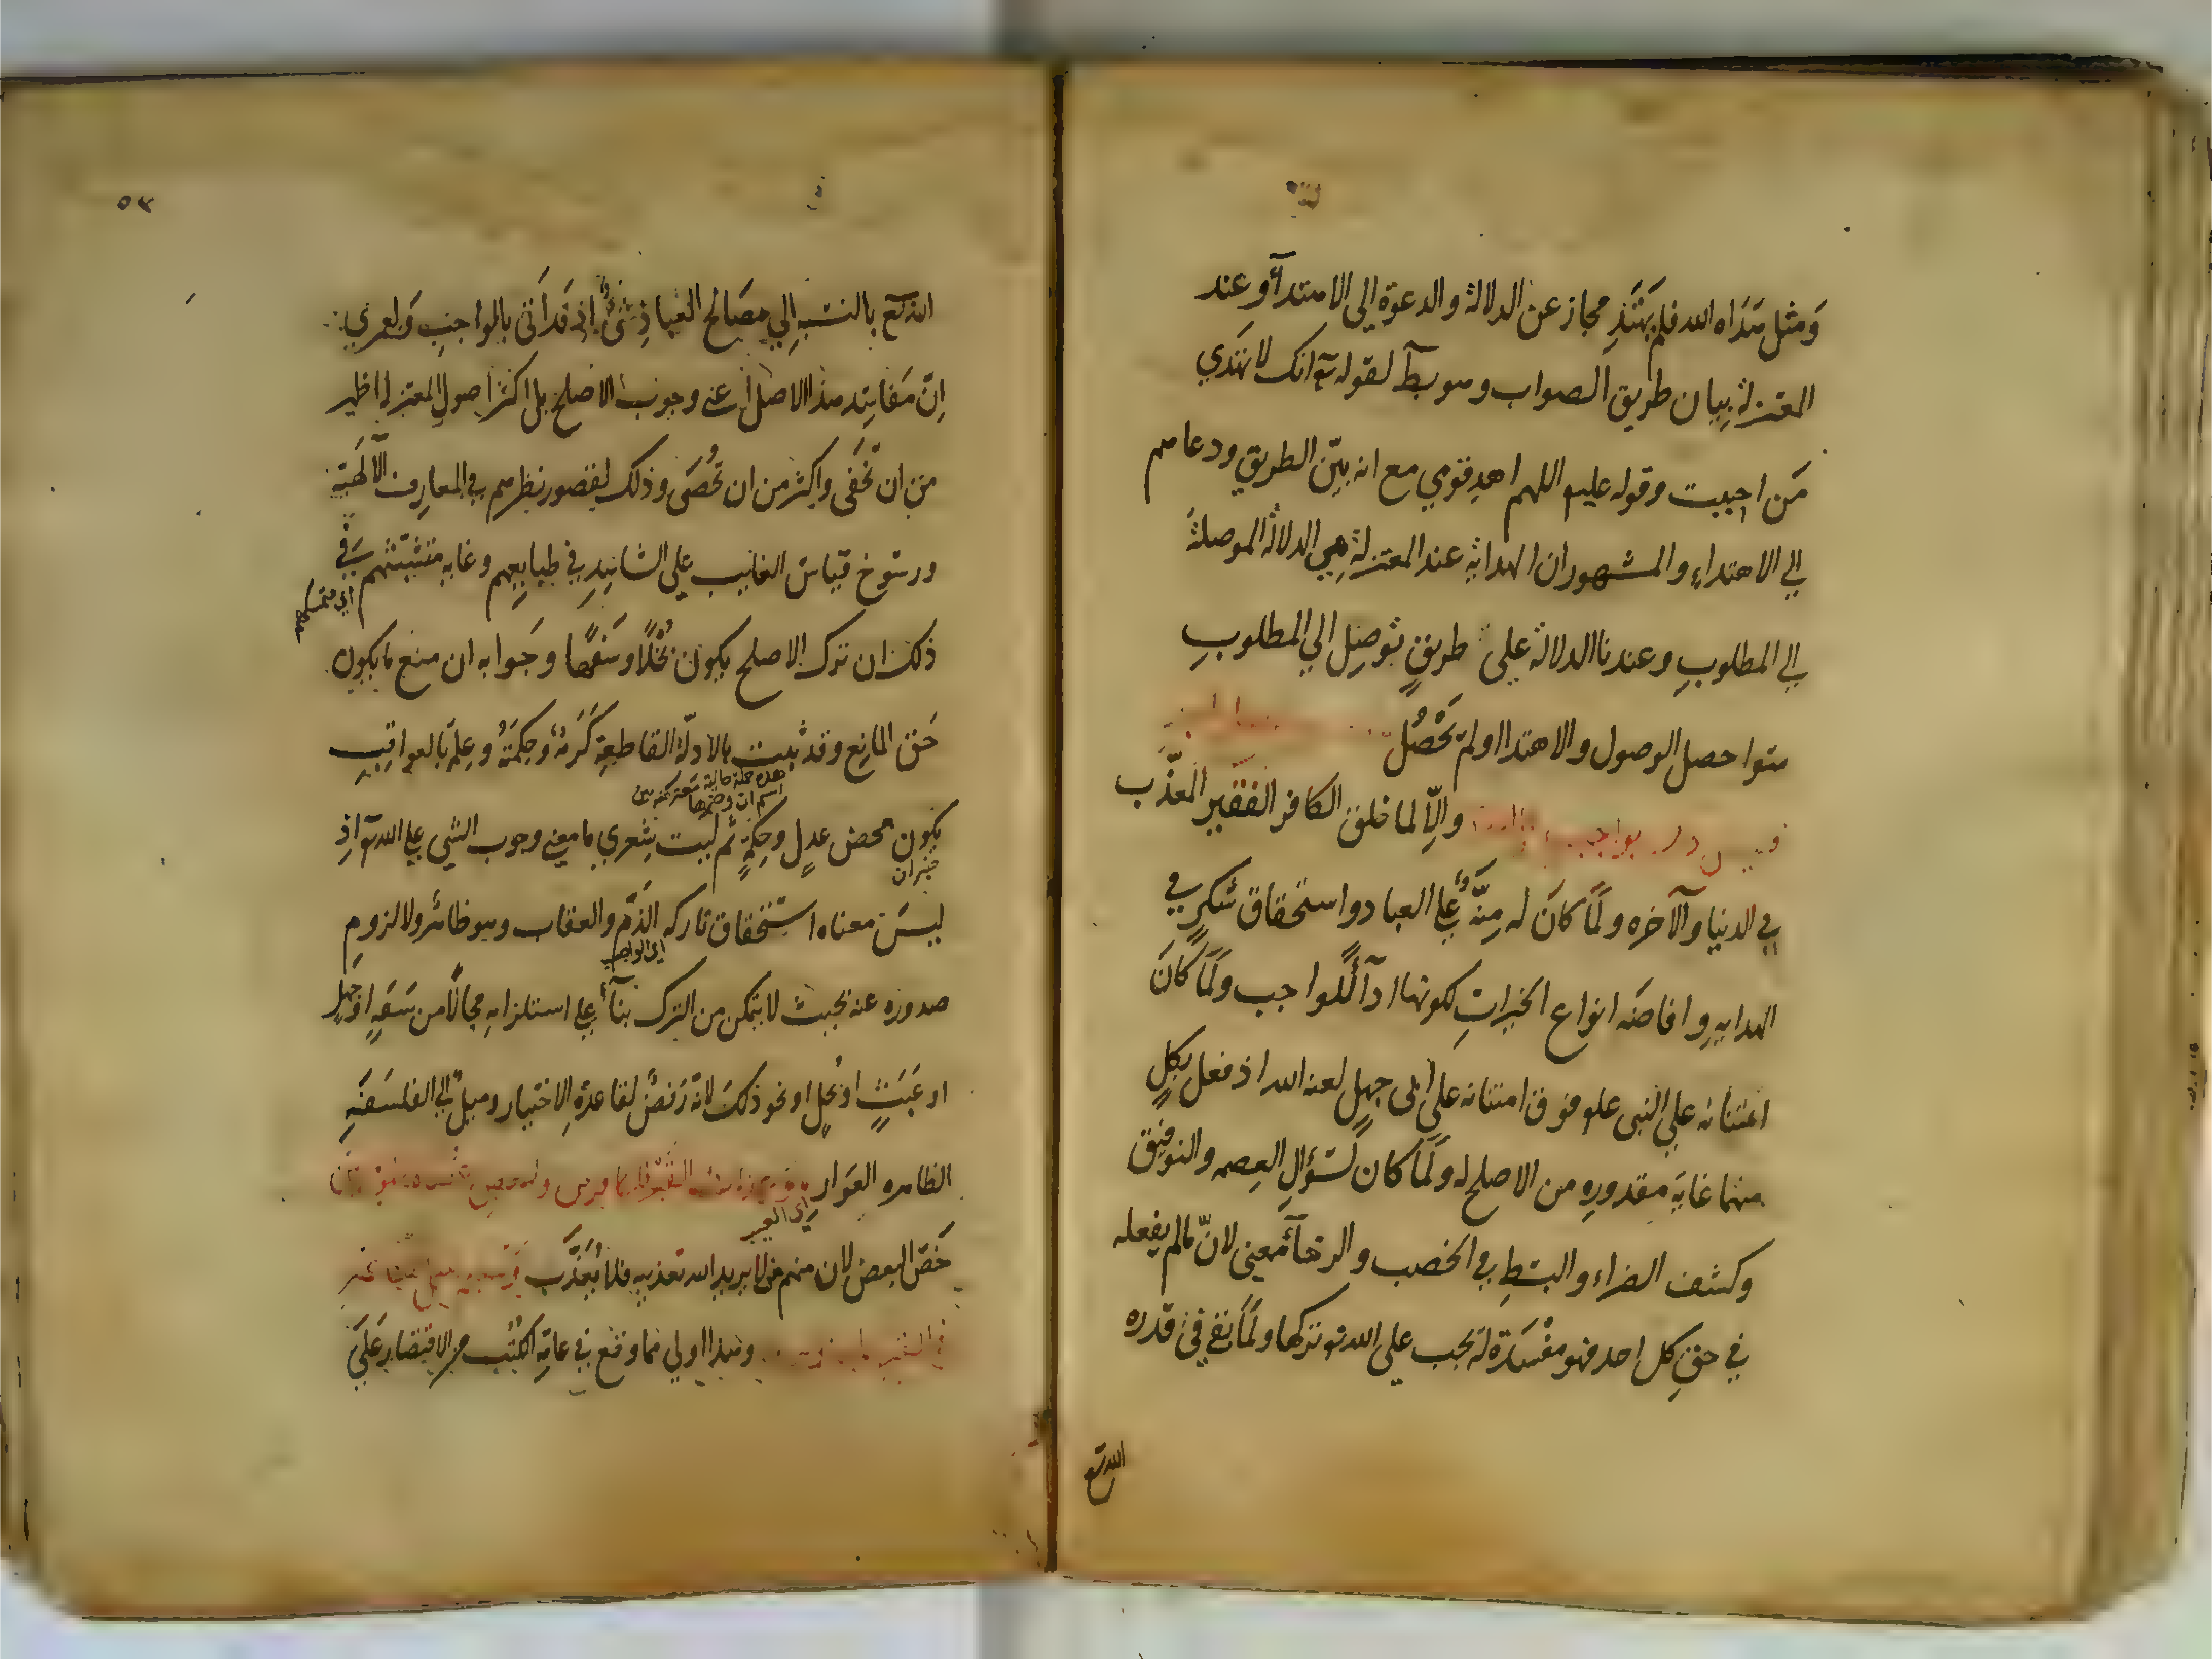 ومثل هداه الله فلم يهتد مجاز عن الدلالة والدعوة الى الاهتدآء وعند
المعتزلة بيان طريق الصواب وهو بط لقوله تع انك لا تهدي
من احببت وقوله عليم اللهم اهد قومي مع انه بيّن الطريق ودعاهم
الى الاهتداء والمشهور ان الهداية عند المعتزلة هي الدلالة الموصلة
الى المطلوب وعندنا الدلالة على طريق توصل الى المطلوب
سوا حصل الوصول والاهتدا اولم تحصل
بواجب والّا لما خلق الكافر الفقير المعذّب
في الدنيا والآخره ولما كان له منّة على العباد واستحقاق شكر في
الهدايه وافاضه انواع الخيرات لكونها ادآءً للواجب ولما كان
امتنانه على النبى علم فوق امتنانه على ابى جهل لعنه الله اذ فعل بكل
منهما غاية مقدوره من الاصلح له ولما كان لسؤال العصمه والتوفيق
وكشف الضراء والبسط في الخصب والرخآء معنى لانّ ما لم يفعله
في حق كل احد فهو مفسدة له يجب على الله تع تركها ولما بقى في قدره
الله تع
٥٣
الله تع بالنسبه الى مصالح العباد شئٌ اذ قد اتى بالواجب ولعمري
انّ مفاسد هذا الاصل اعنى وجوب الاصلح بل اكثر اصول المعتزلة اظهر
من ان تخفى واكثر من ان تحصى وذلك لقصور نظرهم في المعارف الآلهية
ورسوخ قياس الغائب على الشاهد في طبايعهم وغايه متشبثهم في
اي متمسكهم
ذلك ان ترك الاصلح يكون بخلًا وسفهًا وجوابه ان منع ما يكون
حق المانع وقد ثبت بالادلّة القاطعة كرمه وحكمته وعلمه بالعواقب
يكون محض عدل وحكمة ثم ليت شعري ما معنى وجوب الشى على الله تع اذ
خبر ان
ليس معناه استحقاق تاركه الذم والعقاب وهو ظاهر ولا لزوم
اي الواجب
صدوره عنه بحيث لا يتمكن من الترك بنآءً على استلزامه محالًا من سفه او جهل
او عبث او بخل او نحو ذلك لانّه رفض لقاعدة الاختيار وميل الى الفلسفة
الظاهره العوار
اي العيب
خصّ البعض لان منهم من لا يريد الله تعذيبه فلا يعذّب
وهذا اولى مما وقع في عامة الكتب من الاقتصار على